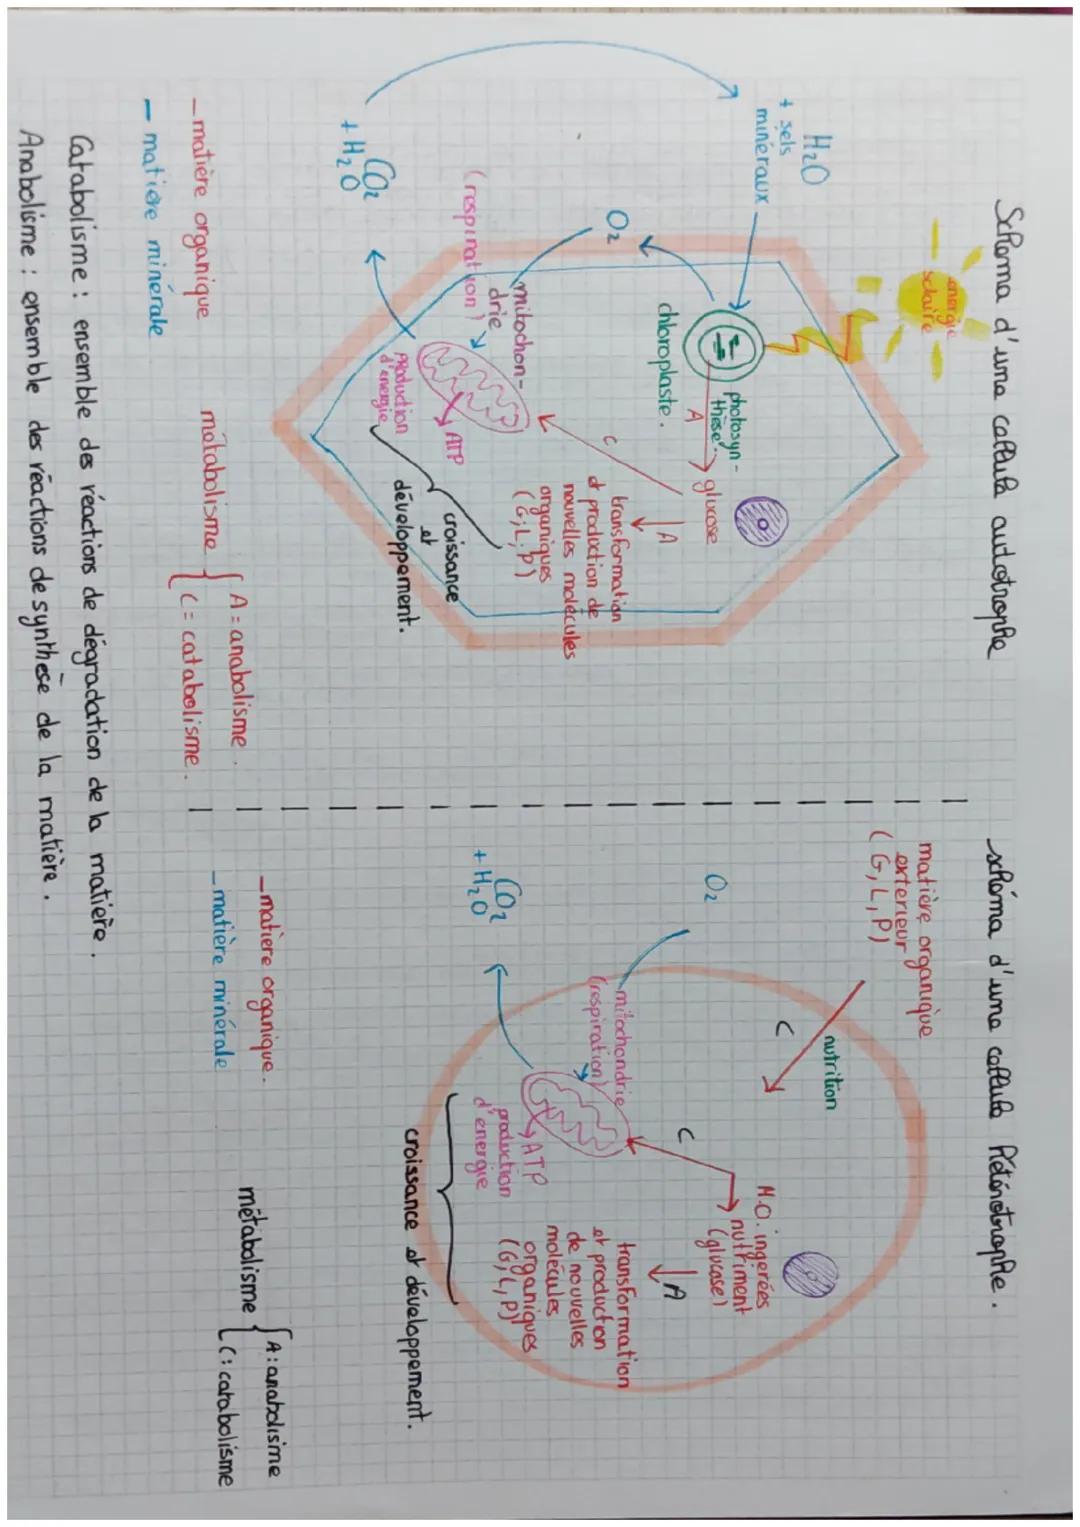 Schéma d'une cellule autotrophe
energie
solaire
H₂O
+ sels
minéraux
photosyn-
thèse
A
glucose
chloroplaste.
O₂
A
C
transformation
et production de
nouvelles molécules
organiques
(G, L, P)
mitochon-
drie
(respiration)
ATP
production
d'énergie
croissance
et
développement.
CO₂
+ H₂O
- matière organique
- matière minérale
métabolisme
A = anabolisme.
C = catabolisme.
Catabolisme : ensemble des réactions de dégradation de la matière.
Anabolisme : ensemble des réactions de synthèse de la matière.
schéma d'une cellule hétérotrophe.
matière organique
exterieur
(G, L, P)
nutrition
C
O₂
M.O. ingerées
nutriment
(glucose)
C
A
mitochondrie
(respiration)
transformation
et production
de nouvelles
molécules
organiques
(G, L, P)
ATP
production
d'énergie
CO₂
+ H₂O
croissance et développement.
- matière organique.
- matière minérale
métabolisme
A : anabolisme
C : catabolisme